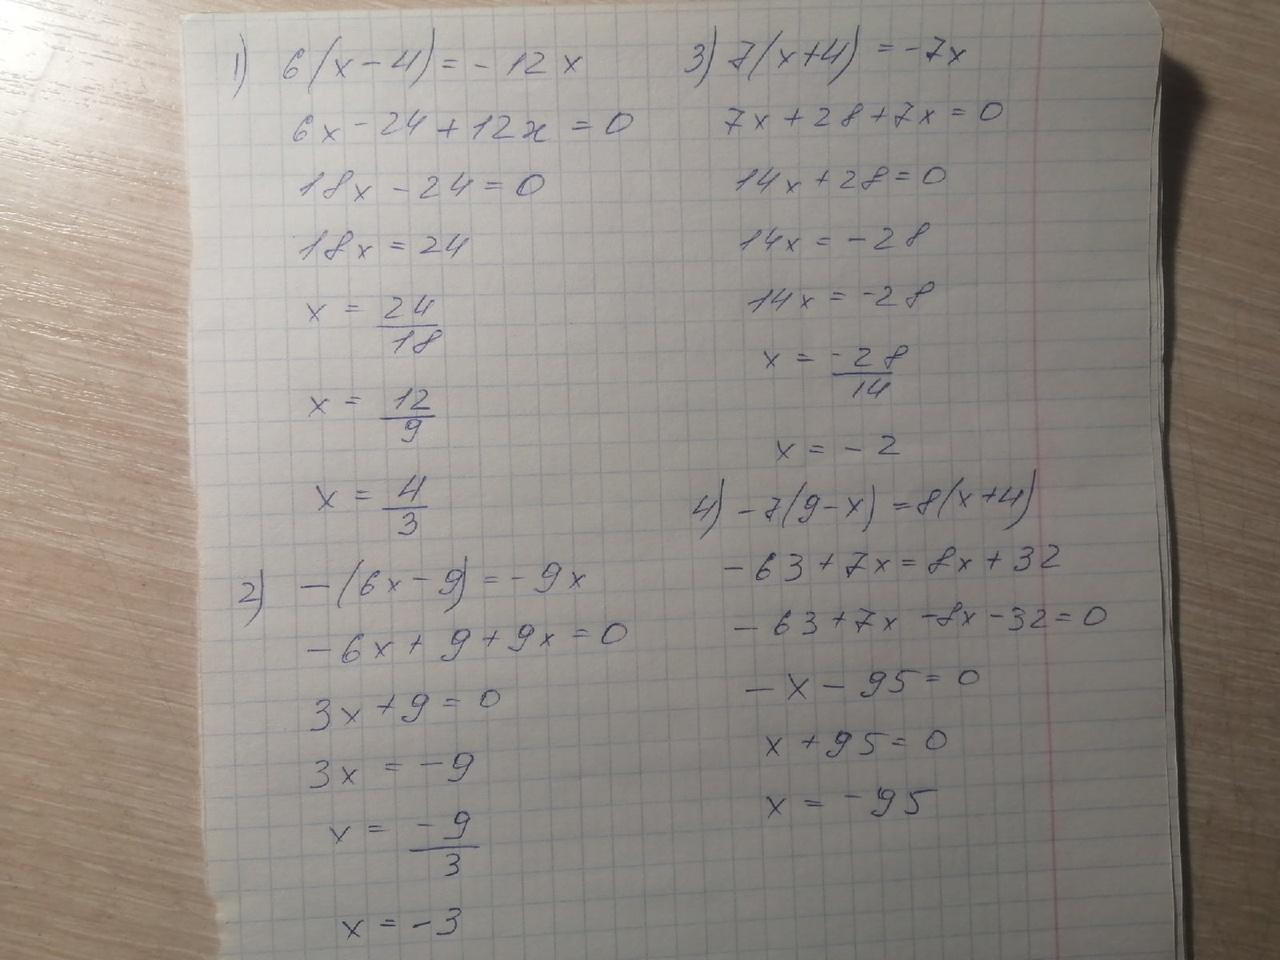 1) 6(x-4)=-12x
6x-24+12x=0
18x-24=0
18x=24
x=24/18
x=12/9
x=4/3
2) -(6x-9)=-9x
-6x+9+9x=0
3x+9=0
3x=-9
x=-9/3
x=-3
3) 7(x+4)=-7x
7x+28+7x=0
14x+28=0
14x=-28
14x=-28
x=-28/14
x=-2
4) -7(9-x)=8(x+4)
-63+7x=8x+32
-63+7x-8x-32=0
-x-95=0
x+95=0
x=-95